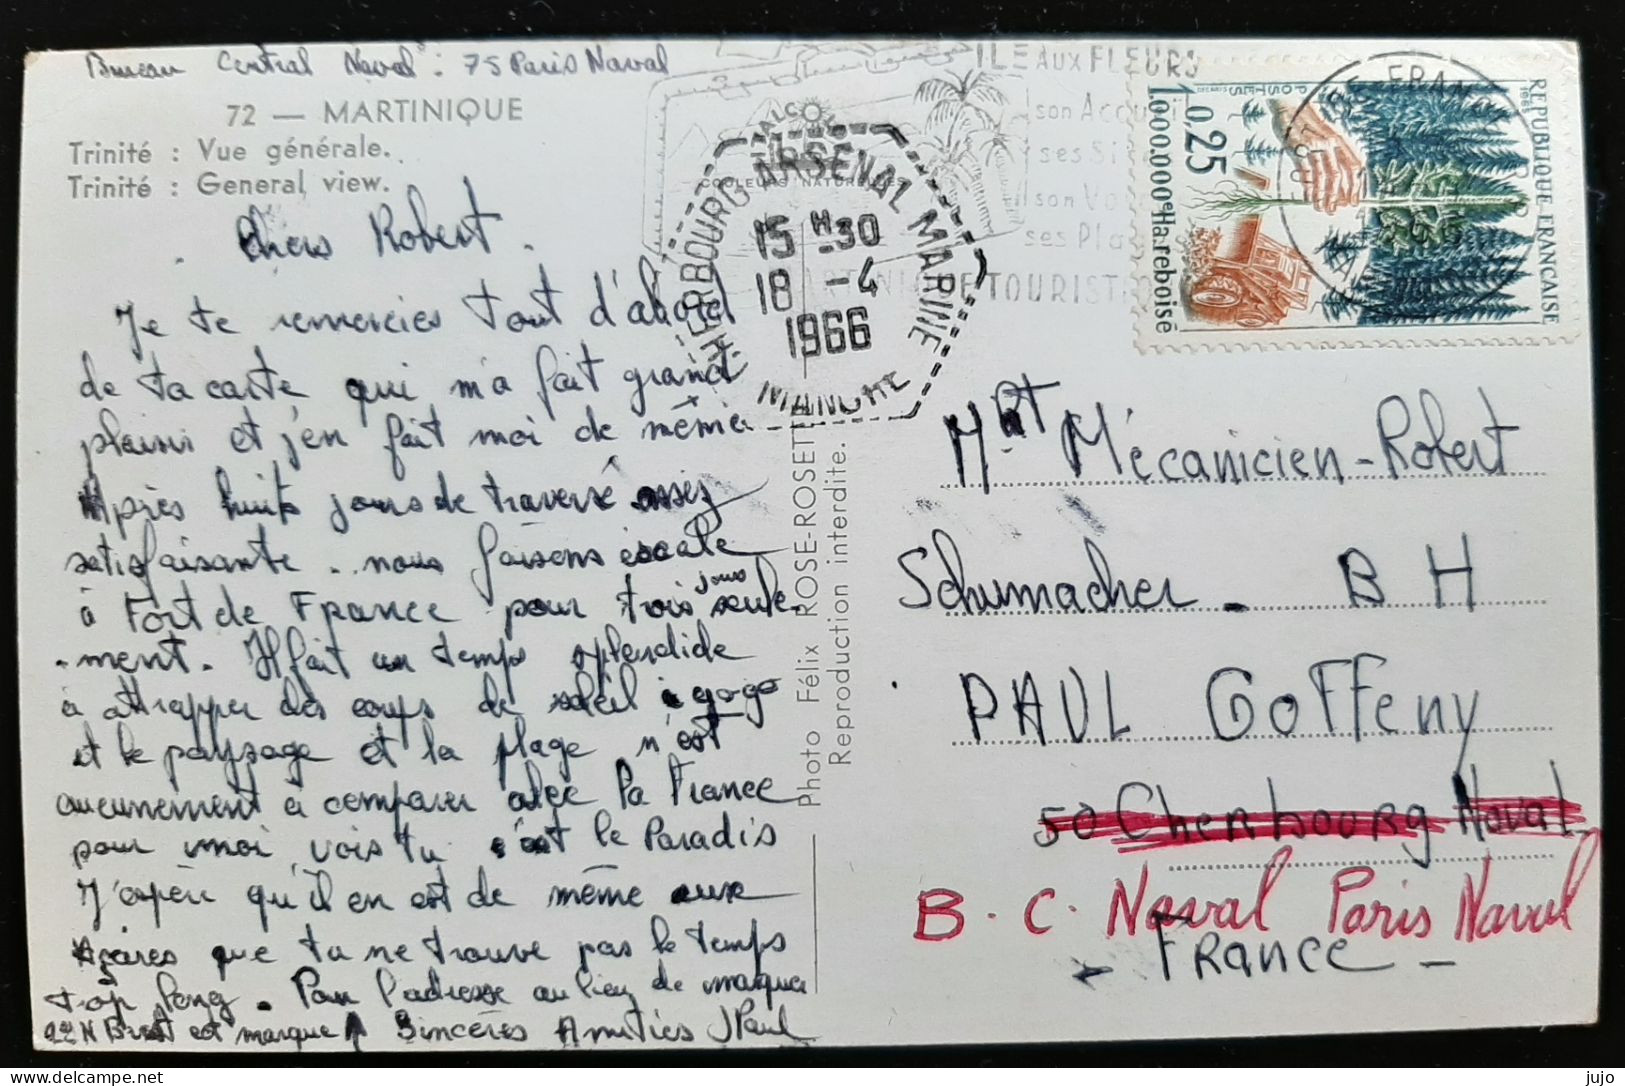 Bureau Central Naval : 75 Paris Naval
72 — MARTINIQUE
Trinité : Vue générale.
Trinité : General view.
Chers Robert.
Je te remercies tout d'abord
de ta carte qui m'a fait grand
plaisir et j'en fait moi de même
Après huit jours de traversé assez
satisfaisante. nous faisons escale
à Fort de France pour trois jours seule-
-ment. Il fait un temps splendide
à attrapper des coups de soleil à gogo
et le paysage et la plage n'est
aucunement à comparer avec la France
pour moi, vois tu c'est le Paradis
J'espère qu'il en est de même aux
Açores que tu ne trouve pas le temps
trop long. Pour l'adresse au lieu de marquer
Brest est marque Sincères Amitiés JPaul
Photo Félix ROSE-ROSETTE
Reproduction interdite.
ILE AUX FLEURS
son
ses
son
ses
TOURIST
COULEURS NATURELLES
CHERBOURG ARSENAL MARINE
15 H 30
18 -4
1966
MANCHE
REPUBLIQUE FRANÇAISE
1965
POSTES
0,25
1.000.000e Ha. reboisé
Mécanicien - Robert
Schumacher - B H
PAUL Goffeny
50 Cherbourg Naval
B. C. Naval Paris Naval
- France -
delcampe.net
jujo